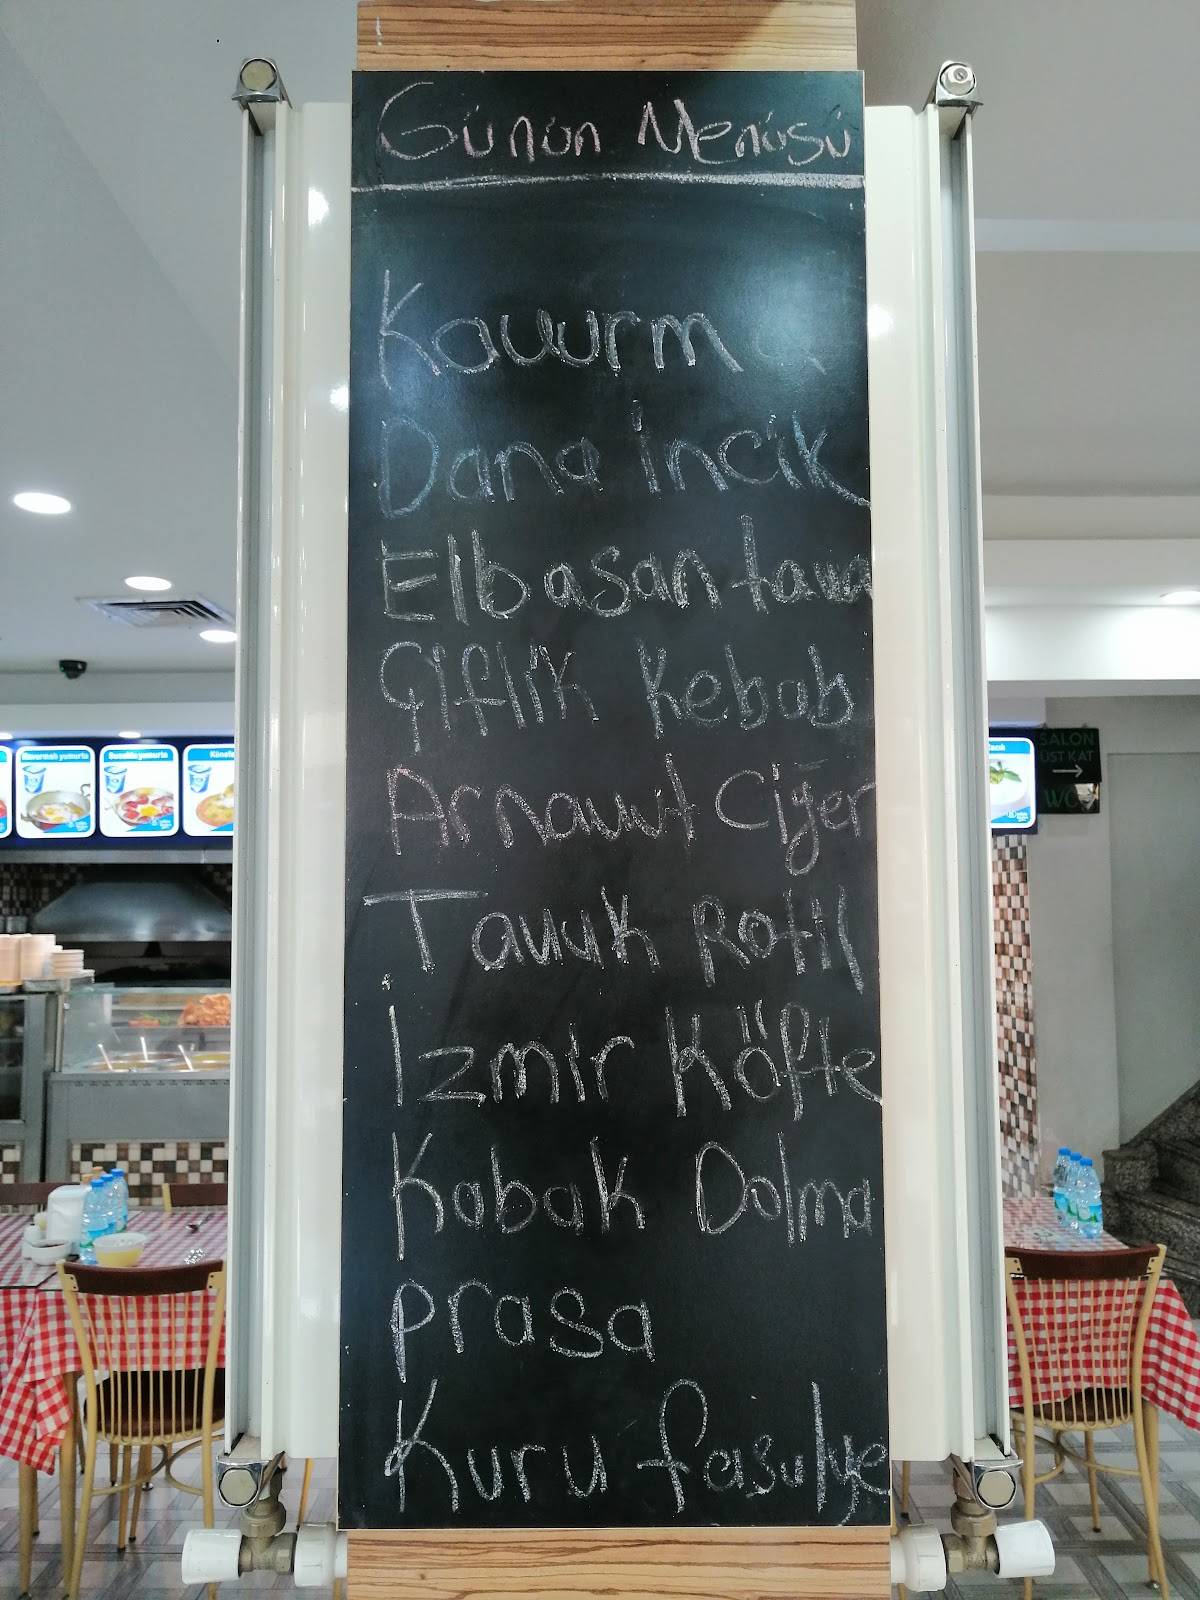 Günün Menüsü
Kavurma
Dana İncik
Elbasan tava
Çiflik Kebab
Arnavut Ciğer
Tavuk Rotil
İzmir Köfte
Kabak Dolma
prasa
Kuru fasulye
Kavurmalı yumurta
Sucuklu yumurta
SALON
ÜST KAT
→
WC